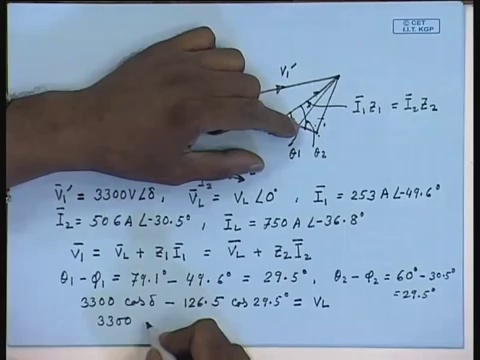 © CET
I.I.T. KGP
V̄₁′
Ī₁Z₁ = Ī₂Z₂
θ₁ θ₂
V̄₁′ = 3300V∠δ , V̄L = VL∠0° , Ī₁ = 253 A∠-49.6°
Ī₂ = 506 A∠-30.5° , ĪL = 750 A∠-36.8°
V̄₁ = V̄L + Z₁Ī₁ = V̄L + Z₂Ī₂
θ₁ - φ₁ = 79.1° - 49.6° = 29.5° , θ₂ - φ₂ = 60° - 30.5°
= 29.5°
3300 cosδ - 126.5 cos 29.5° = VL
3300